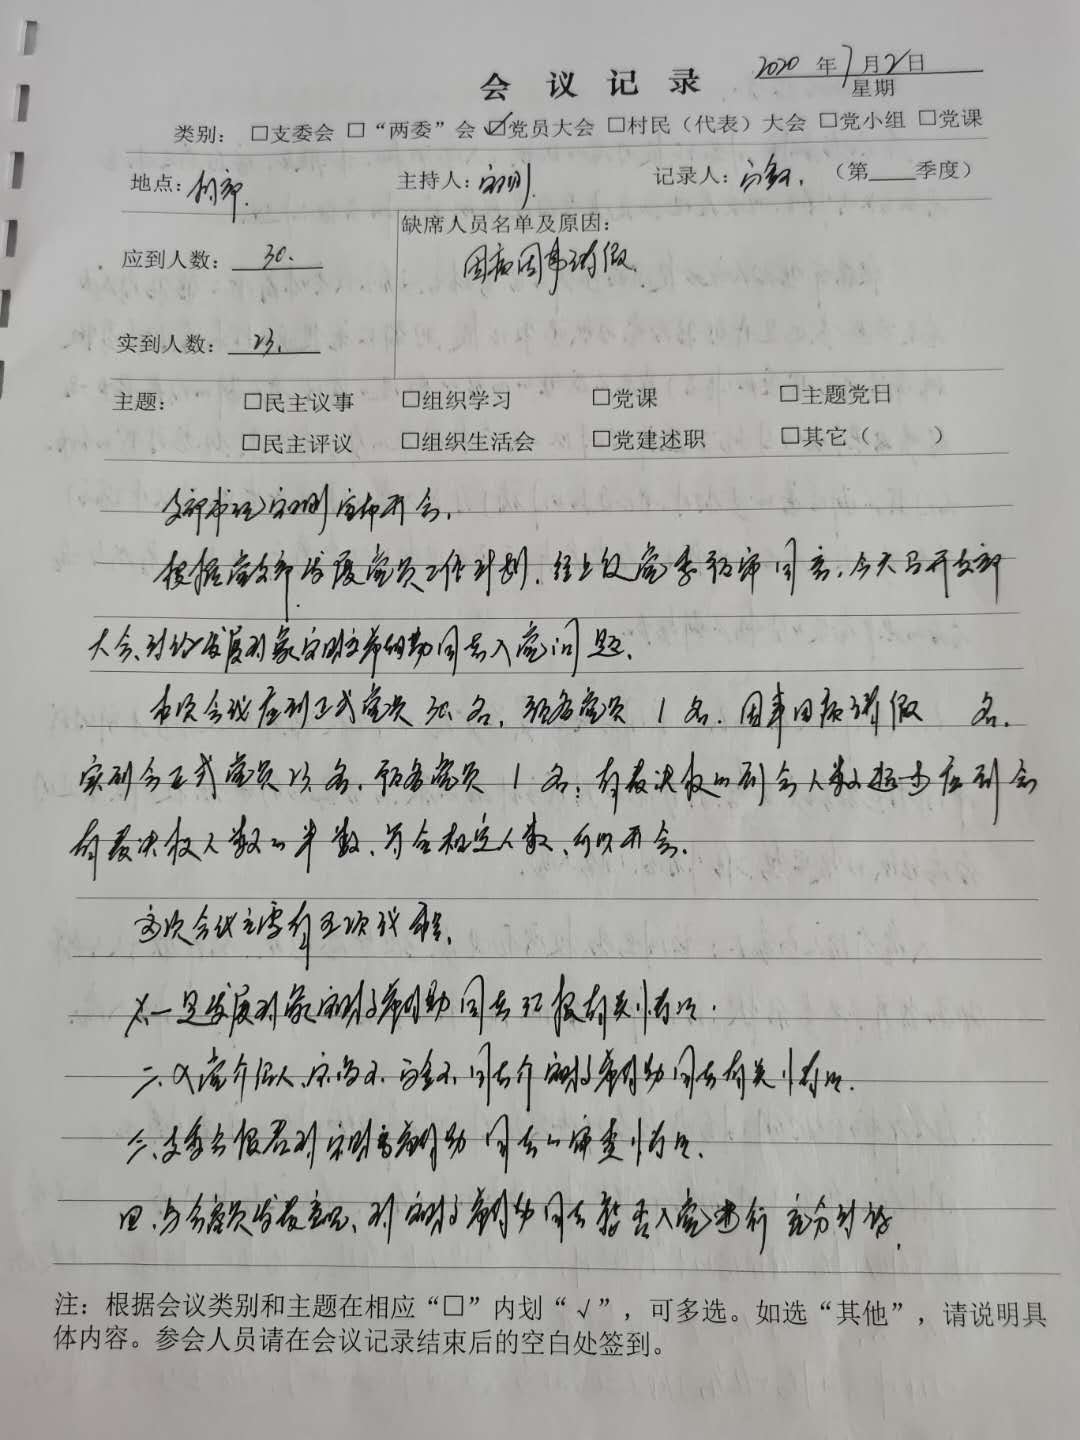 2020年7月2日
会议记录
星期
类别：□支委会 □“两委”会 ☑党员大会 □村民（代表）大会 □党小组 □党课
地点：村部. 主持人： 记录人： （第 季度）
缺席人员名单及原因：
应到人数：30.
因病因事请假.
实到人数：23.
主题： □民主议事 □组织学习 □党课 □主题党日
□民主评议 □组织生活会 □党建述职 □其它（ ）
支部书记 宣布开会.
根据党支部发展党员工作计划，经上级党委预审同意，今天召开支部
大会，讨论发展对象 同志入党问题.
本次会议应到正式党员30名，预备党员1名. 因事因病请假 名.
实到会正式党员23名，预备党员1名；有表决权的到会人数超过应到会
有表决权人数的半数，符合规定人数，可以开会.
这次会议主要有五项议程.
一是发展对象 同志汇报有关情况.
二、入党介绍人 同志介 同志有关情况.
三、支委会报告对 同志的审查情况.
四、与会党员发表意见，对 同志能否入党进行充分讨论.
注：根据会议类别和主题在相应“□”内划“√”，可多选。如选“其他”，请说明具
体内容。参会人员请在会议记录结束后的空白处签到。